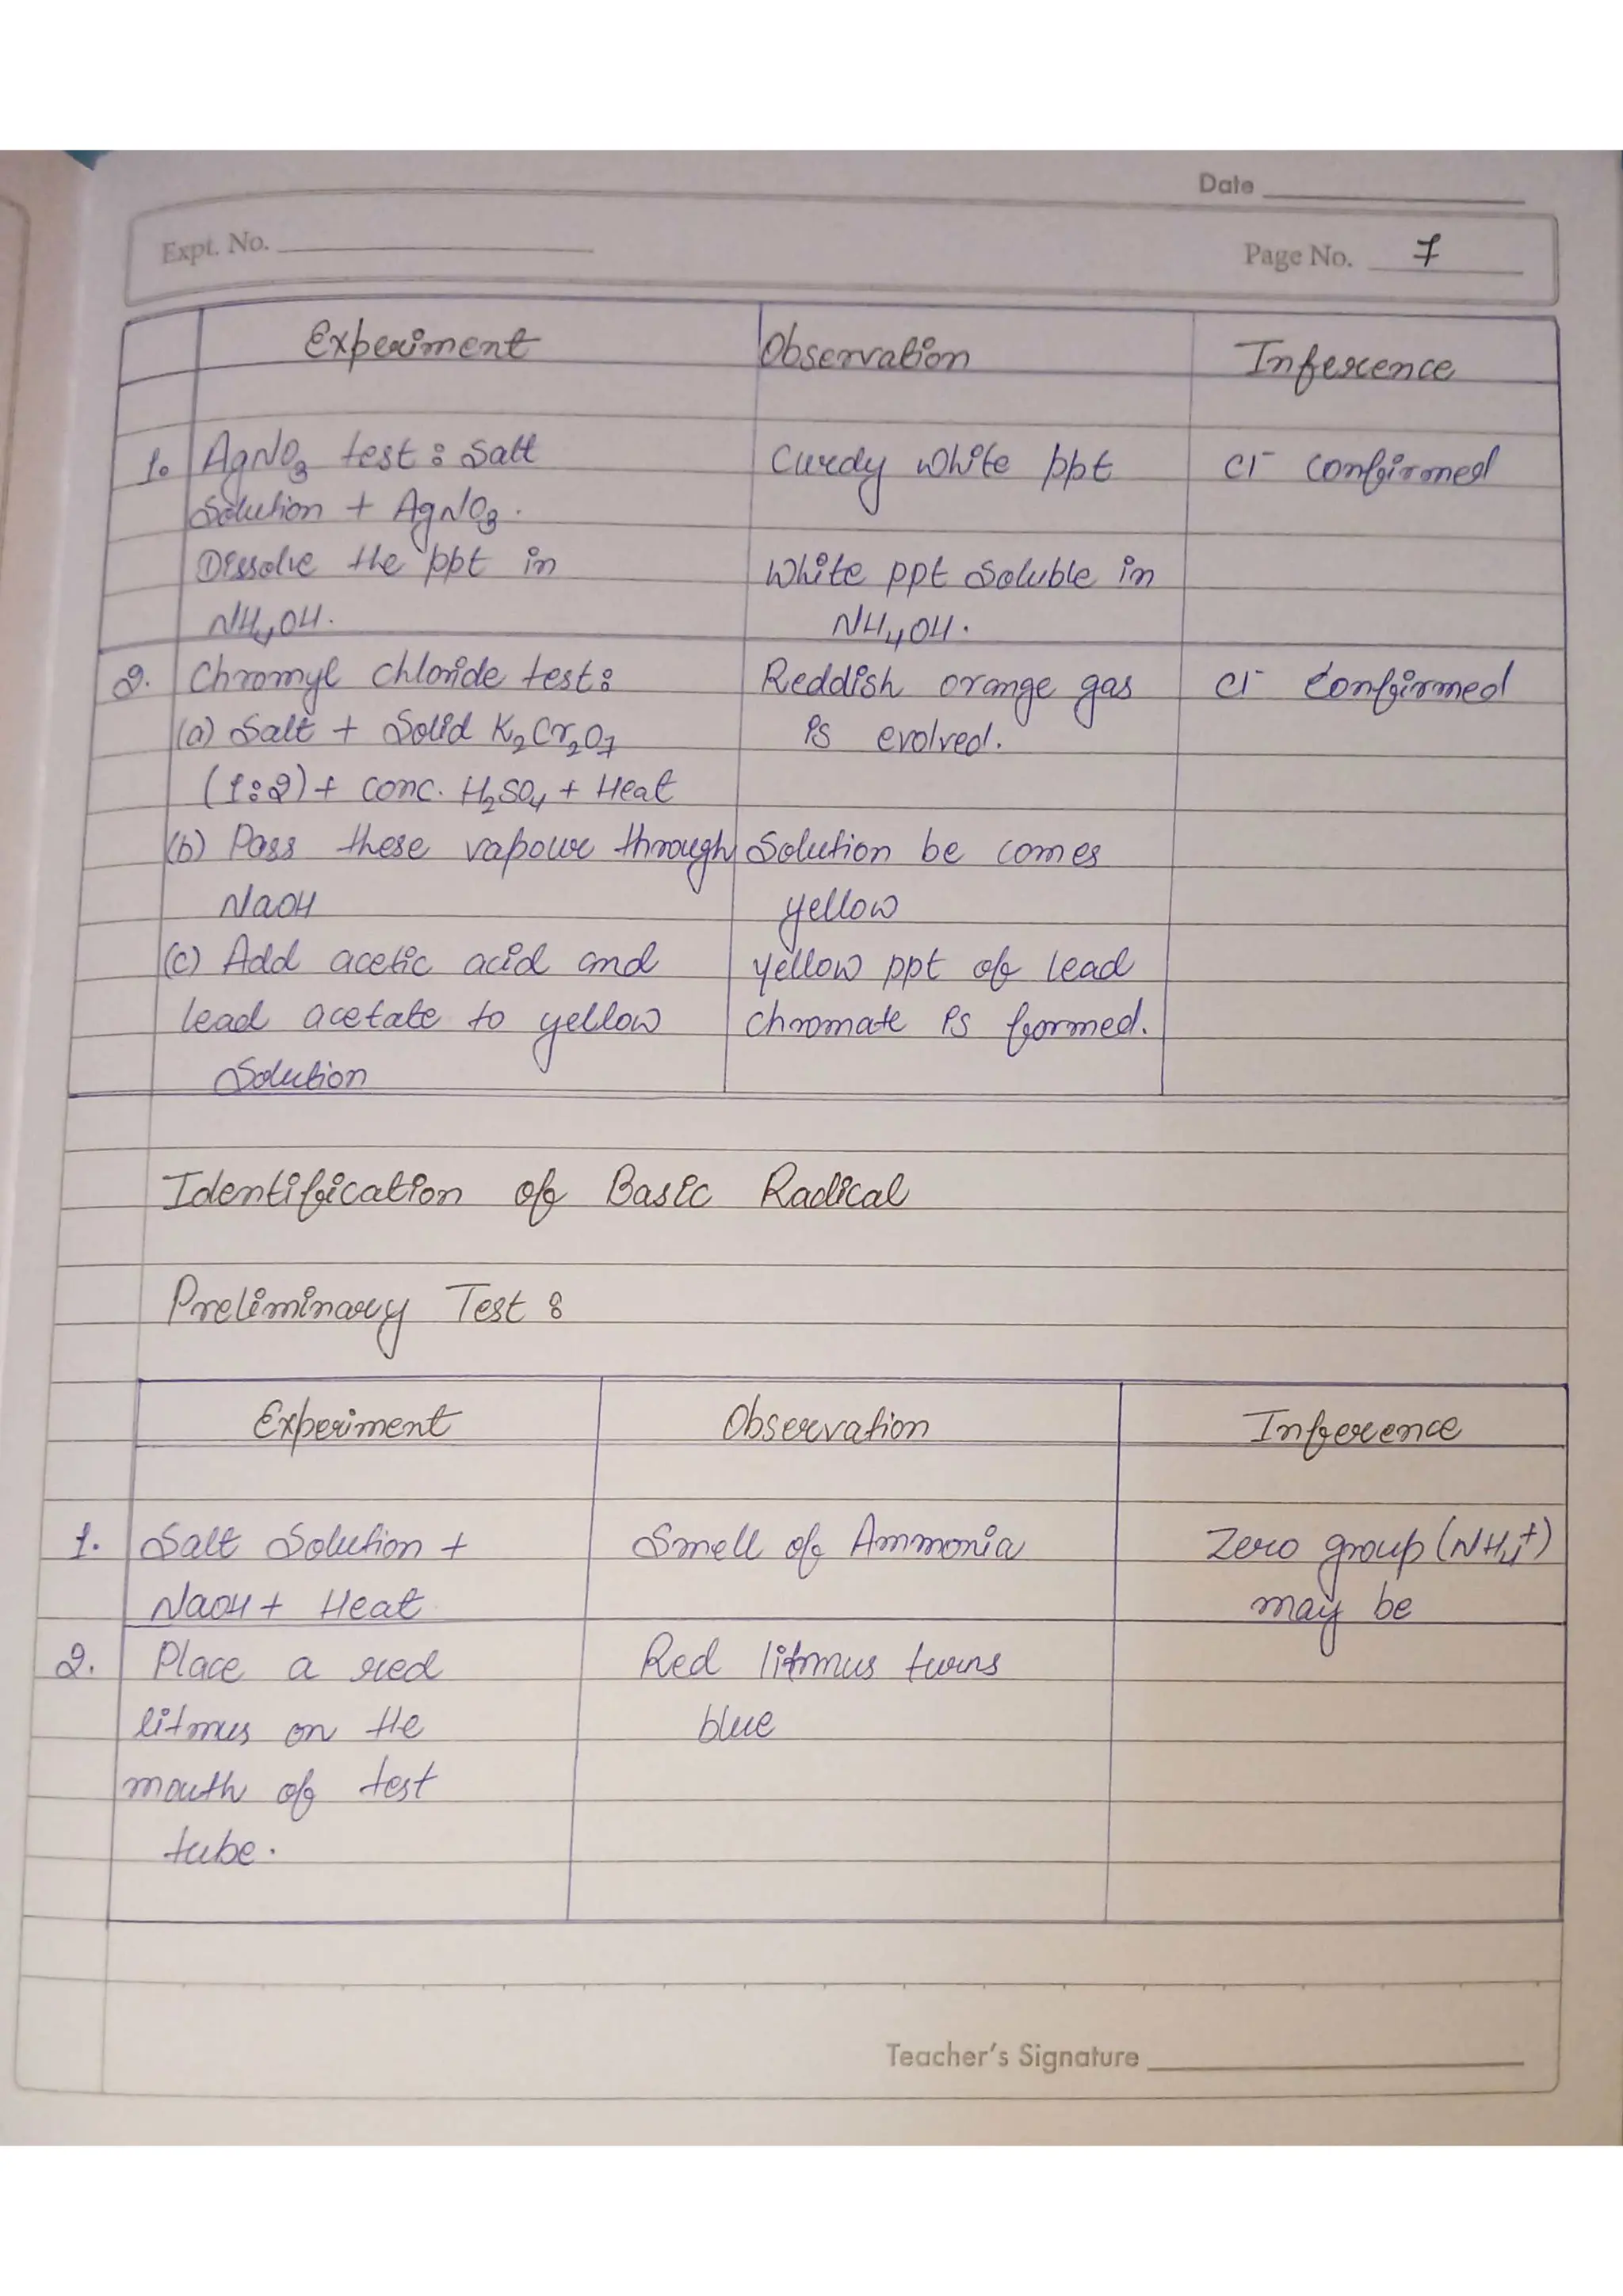 Date
Expt. No.
Page No. 7
Experiment Observation Inference
1. AgNO3 test : Salt Curdy white ppt Cl- confirmed
Solution + AgNO3.
Dissolve the ppt in White ppt Soluble in
NH4OH. NH4OH.
2. Chromyl chloride test: Reddish orange gas Cl- Confirmed
(a) Salt + Solid K2Cr2O7 is evolved.
(1:2) + conc. H2SO4 + Heat
(b) Pass these vapour through Solution be comes
NaOH yellow
(c) Add acetic acid and yellow ppt of lead
lead acetate to yellow chromate is formed.
Solution
Identification of Basic Radical
Preliminary Test :
Experiment Observation Inference
1. Salt Solution + Smell of Ammonia Zero group (NH4+)
NaOH + Heat may be
2. Place a red Red litmus turns
litmus on the blue
mouth of test
tube.
Teacher's Signature